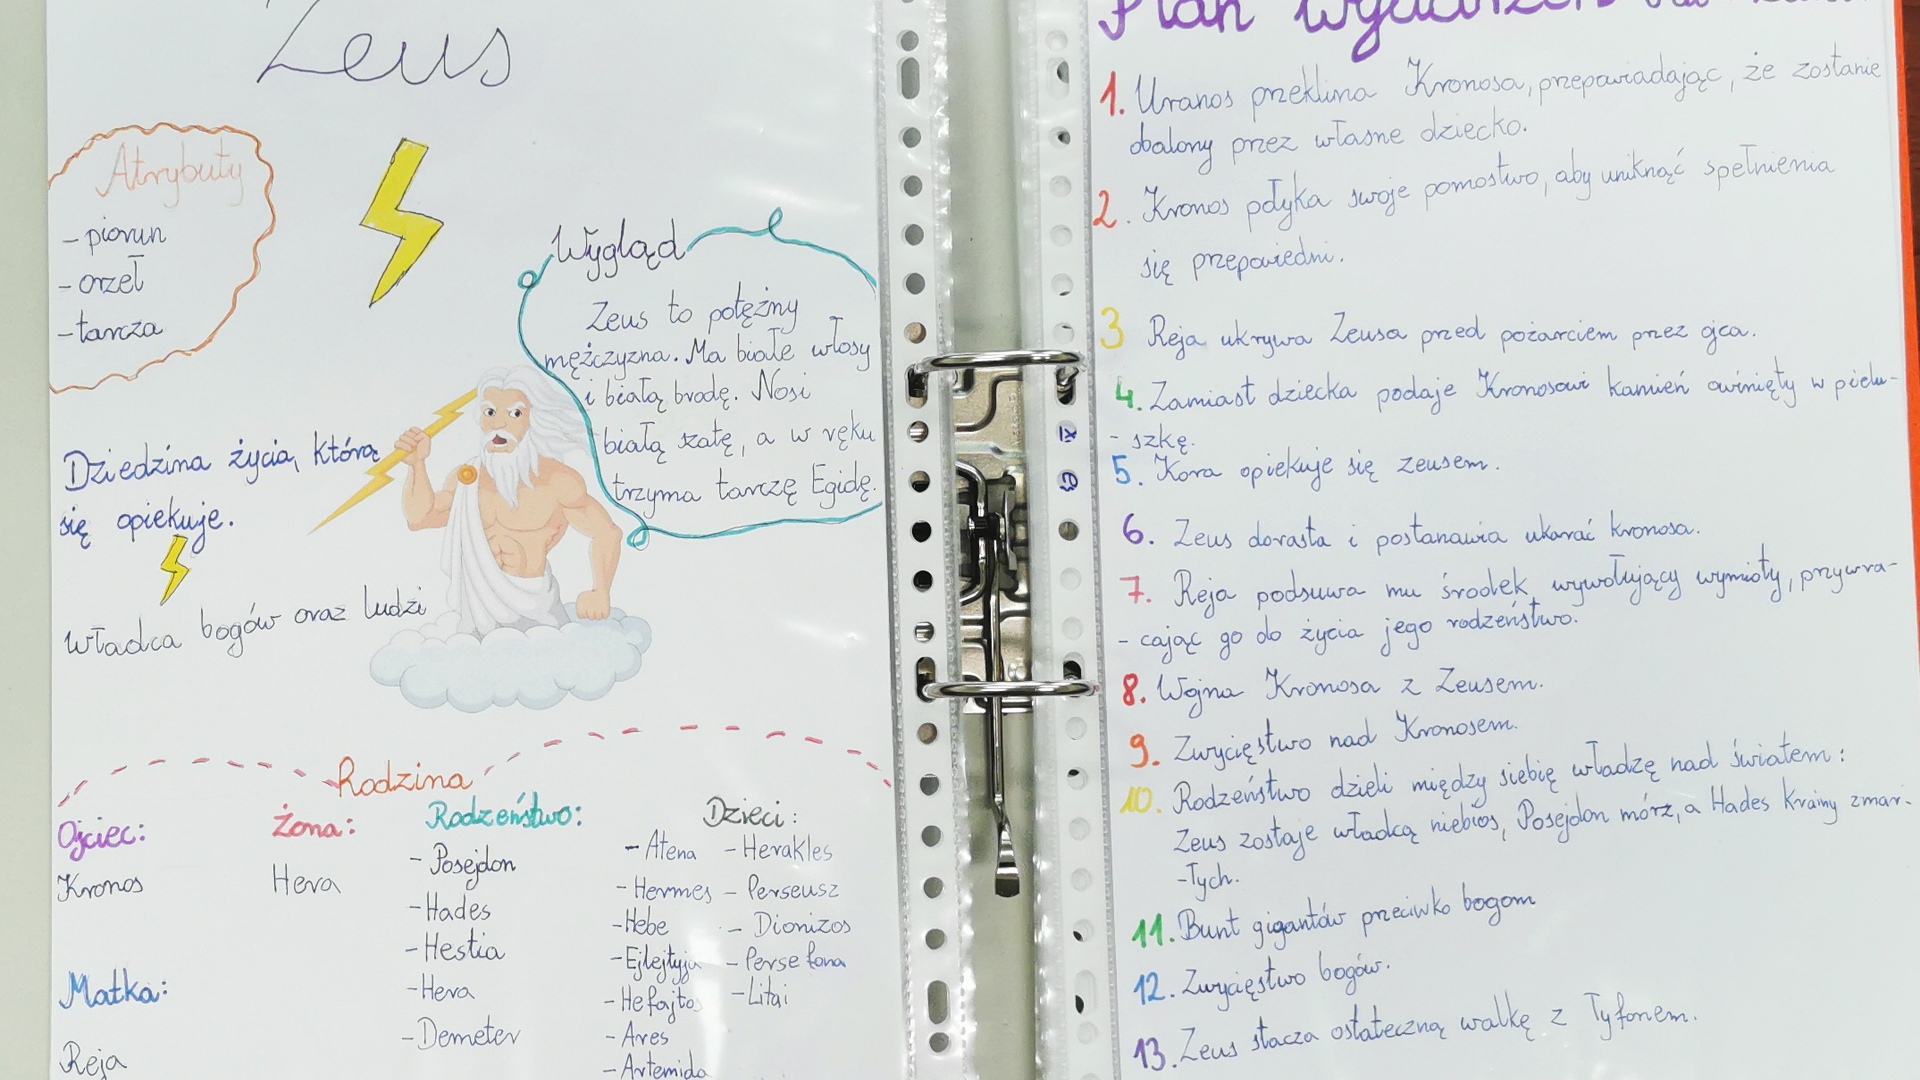 Zeus
Atrybuty
- piorun
- orzeł
- tarcza
Wygląd
Zeus to potężny
mężczyzna. Ma białe włosy
i białą brodę. Nosi
białą szatę, a w ręku
trzyma tarczę Egidę.
Dziedzina życia, którą
się opiekuje.
Władca bogów oraz ludzi
Rodzina
Ojciec:
Kronos
Matka:
Reja
Żona:
Hera
Rodzeństwo:
- Posejdon
- Hades
- Hestia
- Hera
- Demeter
Dzieci:
- Atena
- Hermes
- Hebe
- Ejlejtyja
- Hefajtos
- Ares
- Artemida
- Herakles
- Perseusz
- Dionizos
- Persefona
- Litai
Plan wydarzeń
1. Uranos przeklina Kronosa, przepowiadając, że zostanie
obalony przez własne dziecko.
2. Kronos połyka swoje pomostwo, aby uniknąć spełnienia
się przepowiedni.
3 Reja ukrywa Zeusa przed pożarciem przez ojca.
4. Zamiast dziecka podaje Kronosowi kamień owinięty w pielu-
- szkę.
5. Kora opiekuje się zeusem.
6. Zeus dorasta i postanawia ukarać kronosa.
7. Reja podsuwa mu środek wywołujący wymioty, przywra-
- cając go do życia jego rodzeństwo.
8. Wojna Kronosa z Zeusem.
9. Zwycięstwo nad Kronosem.
10. Rodzeństwo dzieli między siebię władzę nad światem:
Zeus zostaje władcą niebios, Posejdon mórz, a Hades Krainy zmar-
-łych.
11. Bunt gigantów przeciwko bogom
12. Zwycięstwo bogów.
13. Zeus stacza ostateczną walkę z Tyfonem.